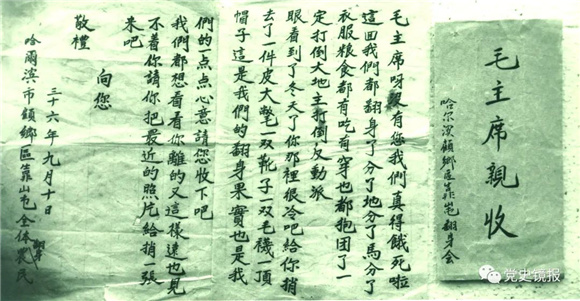 毛主席親收
哈尔濱鎮鄉區靠山屯翻身会
毛主席呀沒有您我們真得餓死啦
這回我們都翻身了分了地分了馬分了
衣服粮食都有吃有穿也都抱团了一
定打倒大地主打倒反動派
眼看到了冬天了你那裡很冷吧給你捎
去了一件皮大氅一双靴子一双毛襪一頂
帽子這是我們的翻身果實也是我
們的点点心意請您收下吧
我們都想看看你離的又這樣遠也見
不着你請你把最近的照片給捎一張
来吧
向您
敬禮
三十六年九月十日
哈爾濱市鎮鄉區靠山屯全体翻身農民
党史镜报